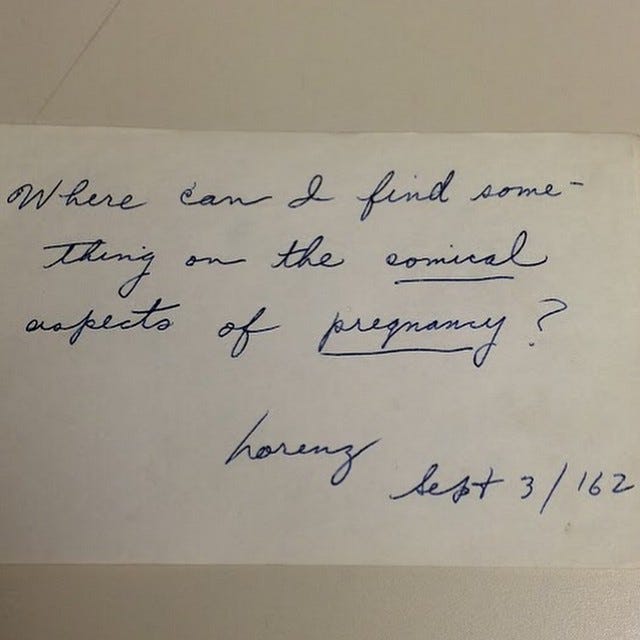 Where can I find some-
thing on the comical
aspects of pregnancy?
Lorenz
Sept 3/162